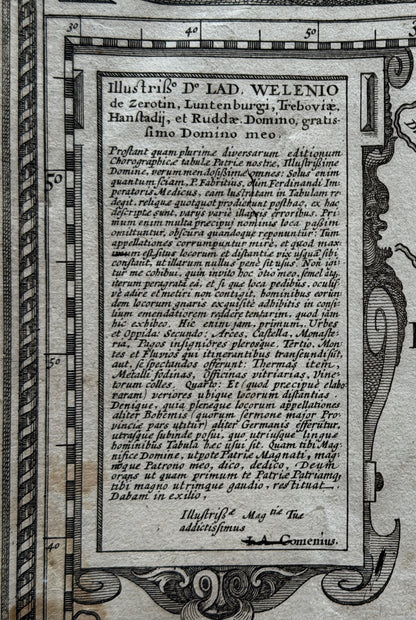 30
40
50
Illustriss.o Do LAD. WELENIO
de Zerotin, Luntenburgi, Treboviæ,
Hanstadij, et Ruddæ. Domino, gratis-
simo Domino meo.
Prostant quam plurimæ diversarum editionum
Chorographicæ tabulæ Patriæ nostræ, Illustrissime
Domine, verum mendosissimæ omnes. Solus enim
quantum sciam, P. Fabritius, olim Ferdinandi Im-
peratoris Medicus, eam lustratam in Tabulam re-
degit. reliquæ quotquot prodierunt posthac, ex hac
descriptæ sunt, parys variè illapsis erroribus. Pri-
mum enim multa præcipui nominis loca passim
omittuntur, obscura quandoque reponuntur: Tum
appellationes corrumpuntur mirè, et quod max-
imum est, situs locorum et distantiæ vix usquā sibi
constant, et illarum nullus penè sit usus. Non igi-
tur me cohibui, quin invito hoc otio meo, semel atq;
iterum peragratā eā, et si qua loca pedibus, oculis-
ve adire et metiri non contigit, hominibus eorun-
dem locorum gnaris exquisitè adhibitis in consi-
lium emendatiorem reddere tentarim. quod jam
hic exhibeo. Hic enim jam, primum, Urbes
et Oppida: Secundo; Arces, Castella, Monaste-
ria, Pagos insigniores pleresque. Tertio, Mon-
tes et Fluvios qui itinerantibus transeundi sūt,
aut, se spectandos offerunt: Thermas item,
Metalli fodinas, Officinas vitriarias, Vine-
torum colles. Quarto: Et (quod præcipuè elabo-
raram) veriores ubique locorum distantias.
Denique, quia plereque locorum appellationes
aliter Bohemis (quorum sermone major Pro-
vinciæ pars utitur) aliter Germanis efferūtur,
utrasque subinde posui, quo utriusque linguæ
hominibus Tabula hæc usui sit. Quam tibi Mag-
nifice Domine, utpote Patriæ Magnati, mag-
noque Patrono meo, dico, dedico, Deum
orans ut quam primum te Patriæ Patriamq;
tibi magno utrimque gaudio, restituat.
Dabam in exilio,
Illustriss.æ Mag tiæ Tuæ
addictissimus
I. A. Comenius.
50
40